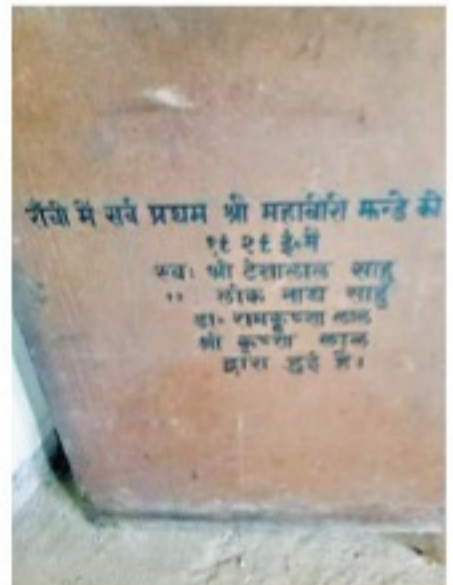 राँची में सर्व प्रथम श्री महाबीरी झन्डे की
१९२९ ई॰ में
स्व: श्री टेसालाल साहु
,, लोक नाथ साहु
डा॰ रामकृष्णा लाल
श्री कृष्णा लाल
द्वारा हुई है।